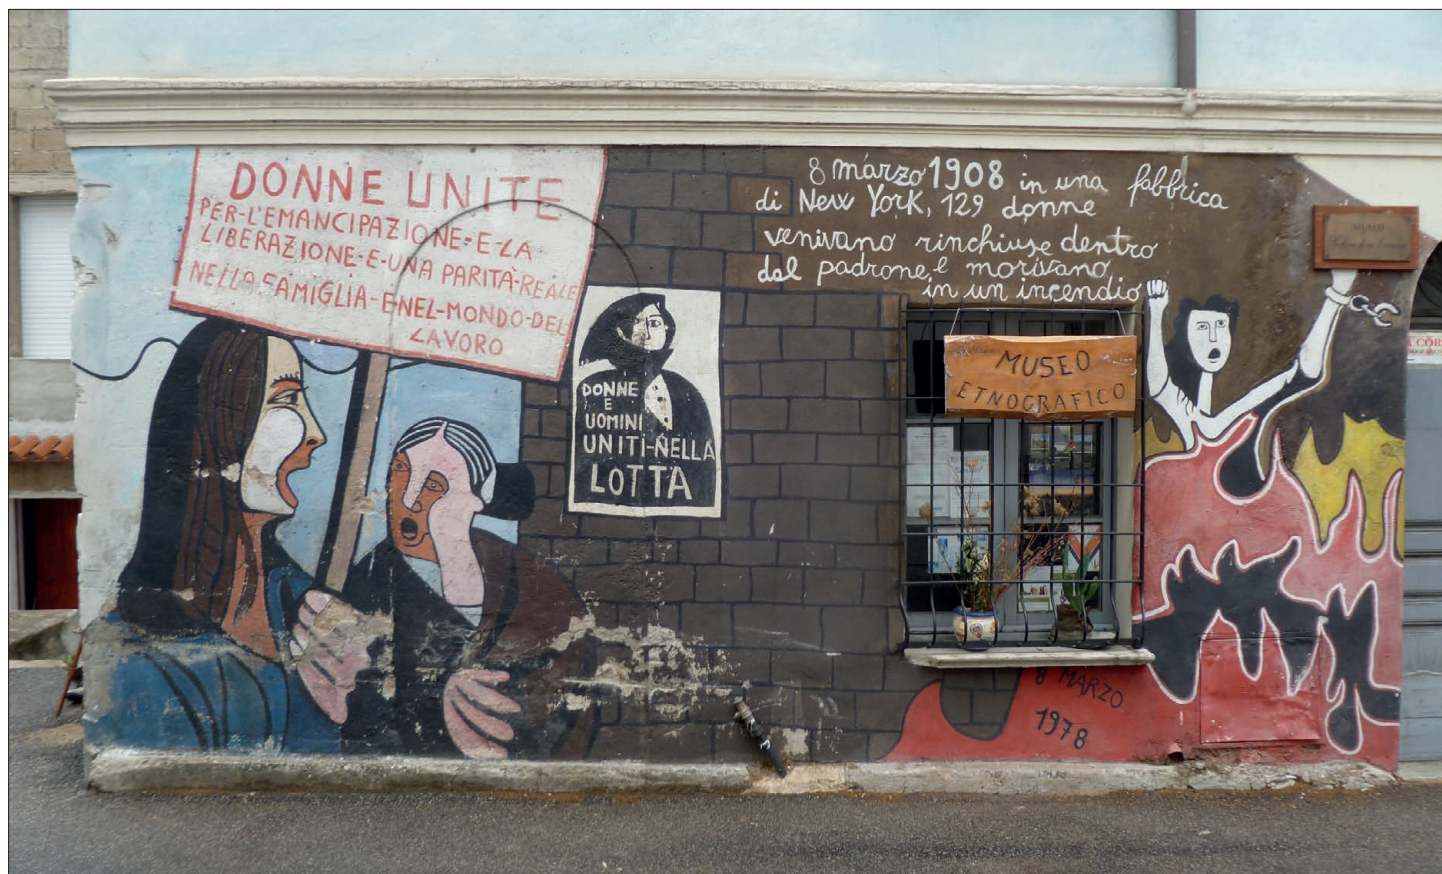 DONNE UNITE
PER-L'EMANCIPAZIONE-E-LA
LIBERAZIONE-E-UNA PARITÀ-REALE
NELLA FAMIGLIA-E NEL-MONDO-DEL
LAVORO
DONNE
E
UOMINI
UNITI-NELLA
LOTTA
8 márzo 1908 in una fabbrica
di New York, 129 donne
venivano rinchiuse dentro
dal padrone, e morivano
in un incendio
MUSEO
MUSEO
ETNOGRAFICO
8 MARZO
1978